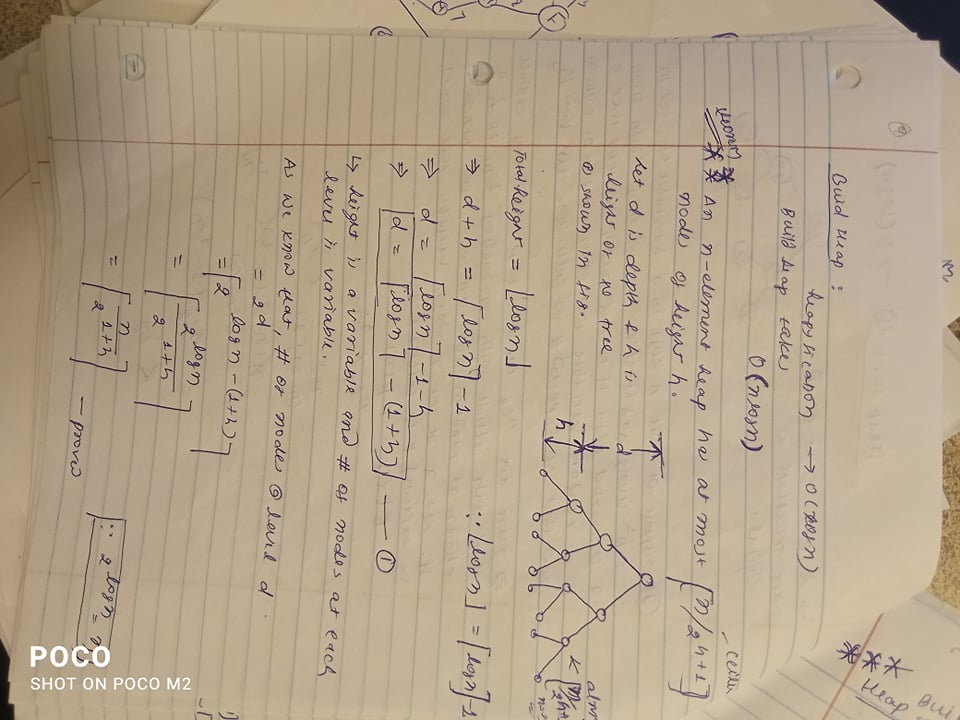 Build Heap :
Heapification → O(logn)
Build heap takes
O(nlogn)
theorem
An n-element heap has at most ⌈n/2^(h+1)⌉
nodes of height h.
let d is depth & h is
height of the tree
shown in fig.
d
h
Total height = ⌊logn⌋
⇒ d+h = ⌈logn⌉-1 ∵ ⌊logn⌋ = ⌈logn⌉-1
⇒ d = ⌈logn⌉-1-h
⇒ d = ⌈logn⌉ - (1+h) — ①
↳ height is a variable and # of nodes at each
level is variable.
As we know that, # of nodes @ level d.
= 2^d
= ⌈2^(logn-(1+h))⌉
= ⌈2^(logn) / 2^(1+h)⌉
= ⌈n / 2^(1+h)⌉ — proved
∵ 2^(logn) = n
POCO
SHOT ON POCO M2